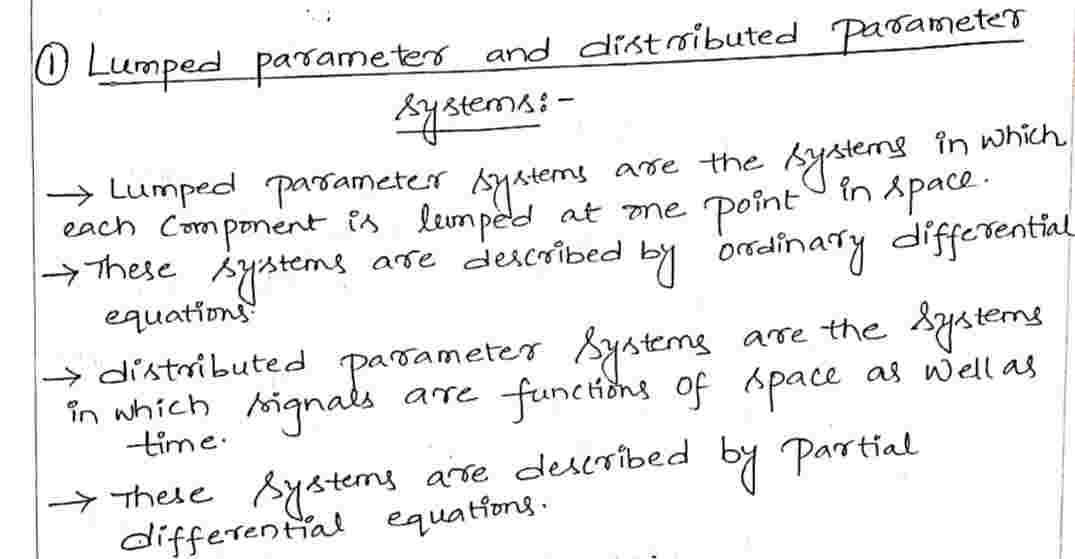 ① Lumped parameter and distributed parameter
systems:-
→ Lumped parameter systems are the systems in which
each component is lumped at one point in space.
→ These systems are described by ordinary differential
equations.
→ distributed parameter systems are the systems
in which signals are functions of space as well as
time.
→ These systems are described by Partial
differential equations.